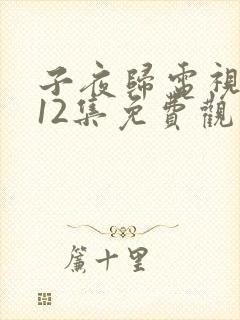 子夜歸電視
12集免費觀
簾十里